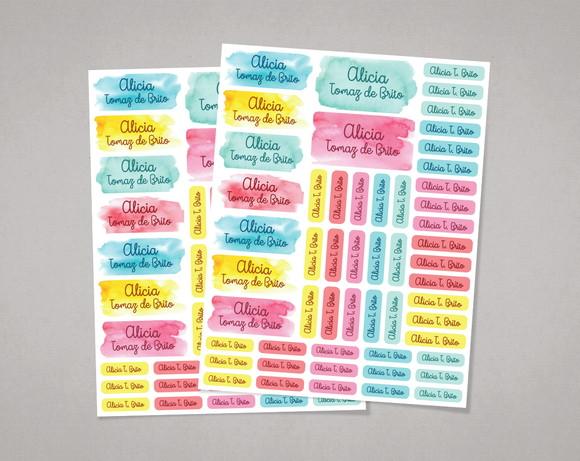 Alicia
Tomaz de Brito
Alicia
Tomaz de Brito
Alicia
Tomaz de Brito
Alicia
Tomaz de Brito
Alicia
Tomaz de Brito
Alicia
Tomaz de Brito
Alicia
Tomaz de Brito
Alicia T. Brito
Alicia T. Brito
Alicia T. Brito
Alicia T. Brito
Alicia T. Brito
Alicia T. Brito
Alicia T. Brito
Alicia T. Brito
Alicia T. Brito
Alicia
Tomaz de Brito
Alicia
Tomaz de Brito
Alicia
Tomaz de Brito
Alicia
Tomaz de Brito
Alicia
Tomaz de Brito
Alicia
Tomaz de Brito
Alicia
Tomaz de Brito
Alicia
Tomaz de Brito
Alicia
Tomaz de Brito
Alicia T. Brito
Alicia T. Brito
Alicia T. Brito
Alicia T. Brito
Alicia T. Brito
Alicia T. Brito
Alicia T. Brito
Alicia T. Brito
Alicia T. Brito
Alicia T. Brito
Alicia T. Brito
Alicia T. Brito
Alicia T. Brito
Alicia T. Brito
Alicia T. Brito
Alicia T. Brito
Alicia T. Brito
Alicia T. Brito
Alicia T. Brito
Alicia T. Brito
Alicia T. Brito
Alicia T. Brito
Alicia T. Brito
Alicia T. Brito
Alicia T. Brito
Alicia T. Brito
Alicia T. Brito
Alicia T. Brito
Alicia T. Brito
Alicia T. Brito
Alicia T. Brito
Alicia T. Brito
Alicia T. Brito
Alicia T. Brito
Alicia T. Brito
Alicia T. Brito
Alicia T. Brito
Alicia T. Brito
Alicia T. Brito
Alicia T. Brito
Alicia T. Brito
Alicia T. Brito
Alicia T. Brito
Alicia T. Brito
Alicia T. Brito